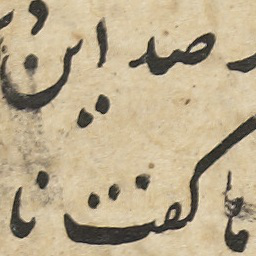 صد این
ما گفت نا